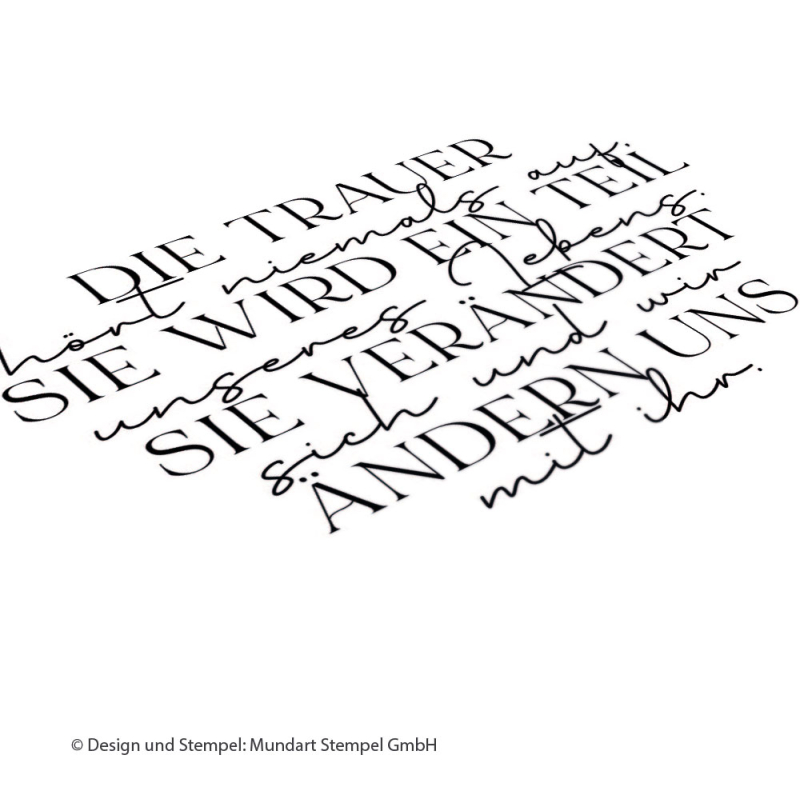 DIE TRAUER
hört niemals auf.
SIE WIRD EIN TEIL
unseres Lebens.
SIE VERÄNDERT
sich und wir
ÄNDERN UNS
mit ihr.
© Design und Stempel: Mundart Stempel GmbH